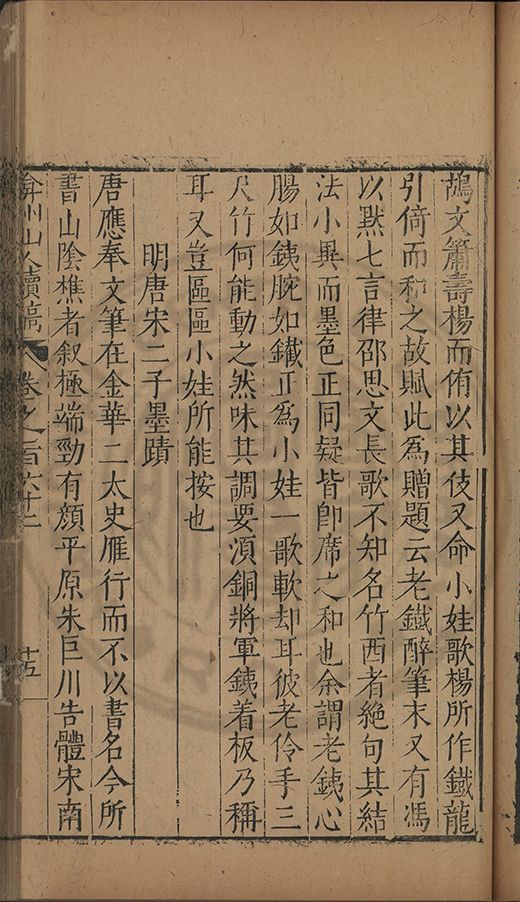 鴣文簫壽楊而侑以其伎又命小娃歌楊所作鐵龍
引倚而和之故賦此為贈題云老鐵醉筆末又有馮
以黙七言律邵思文長歌不知名竹西者絶句其結
法小異而墨色正同疑皆卽席之和也余謂老銕心
腸如銕腕如鐵正為小娃一歌軟却耳彼老伶手三
尺竹何能動之然味其調要湏銅將軍銕着板乃稱
耳又豈區區小娃所能按也
明唐宋二子墨蹟
唐應奉文筆在金華二太史雁行而不以書名今所
書山陰樵者叙極端勁有顏平原朱巨川告體宋南
弇州山人續稿 卷之一百六十二 十五